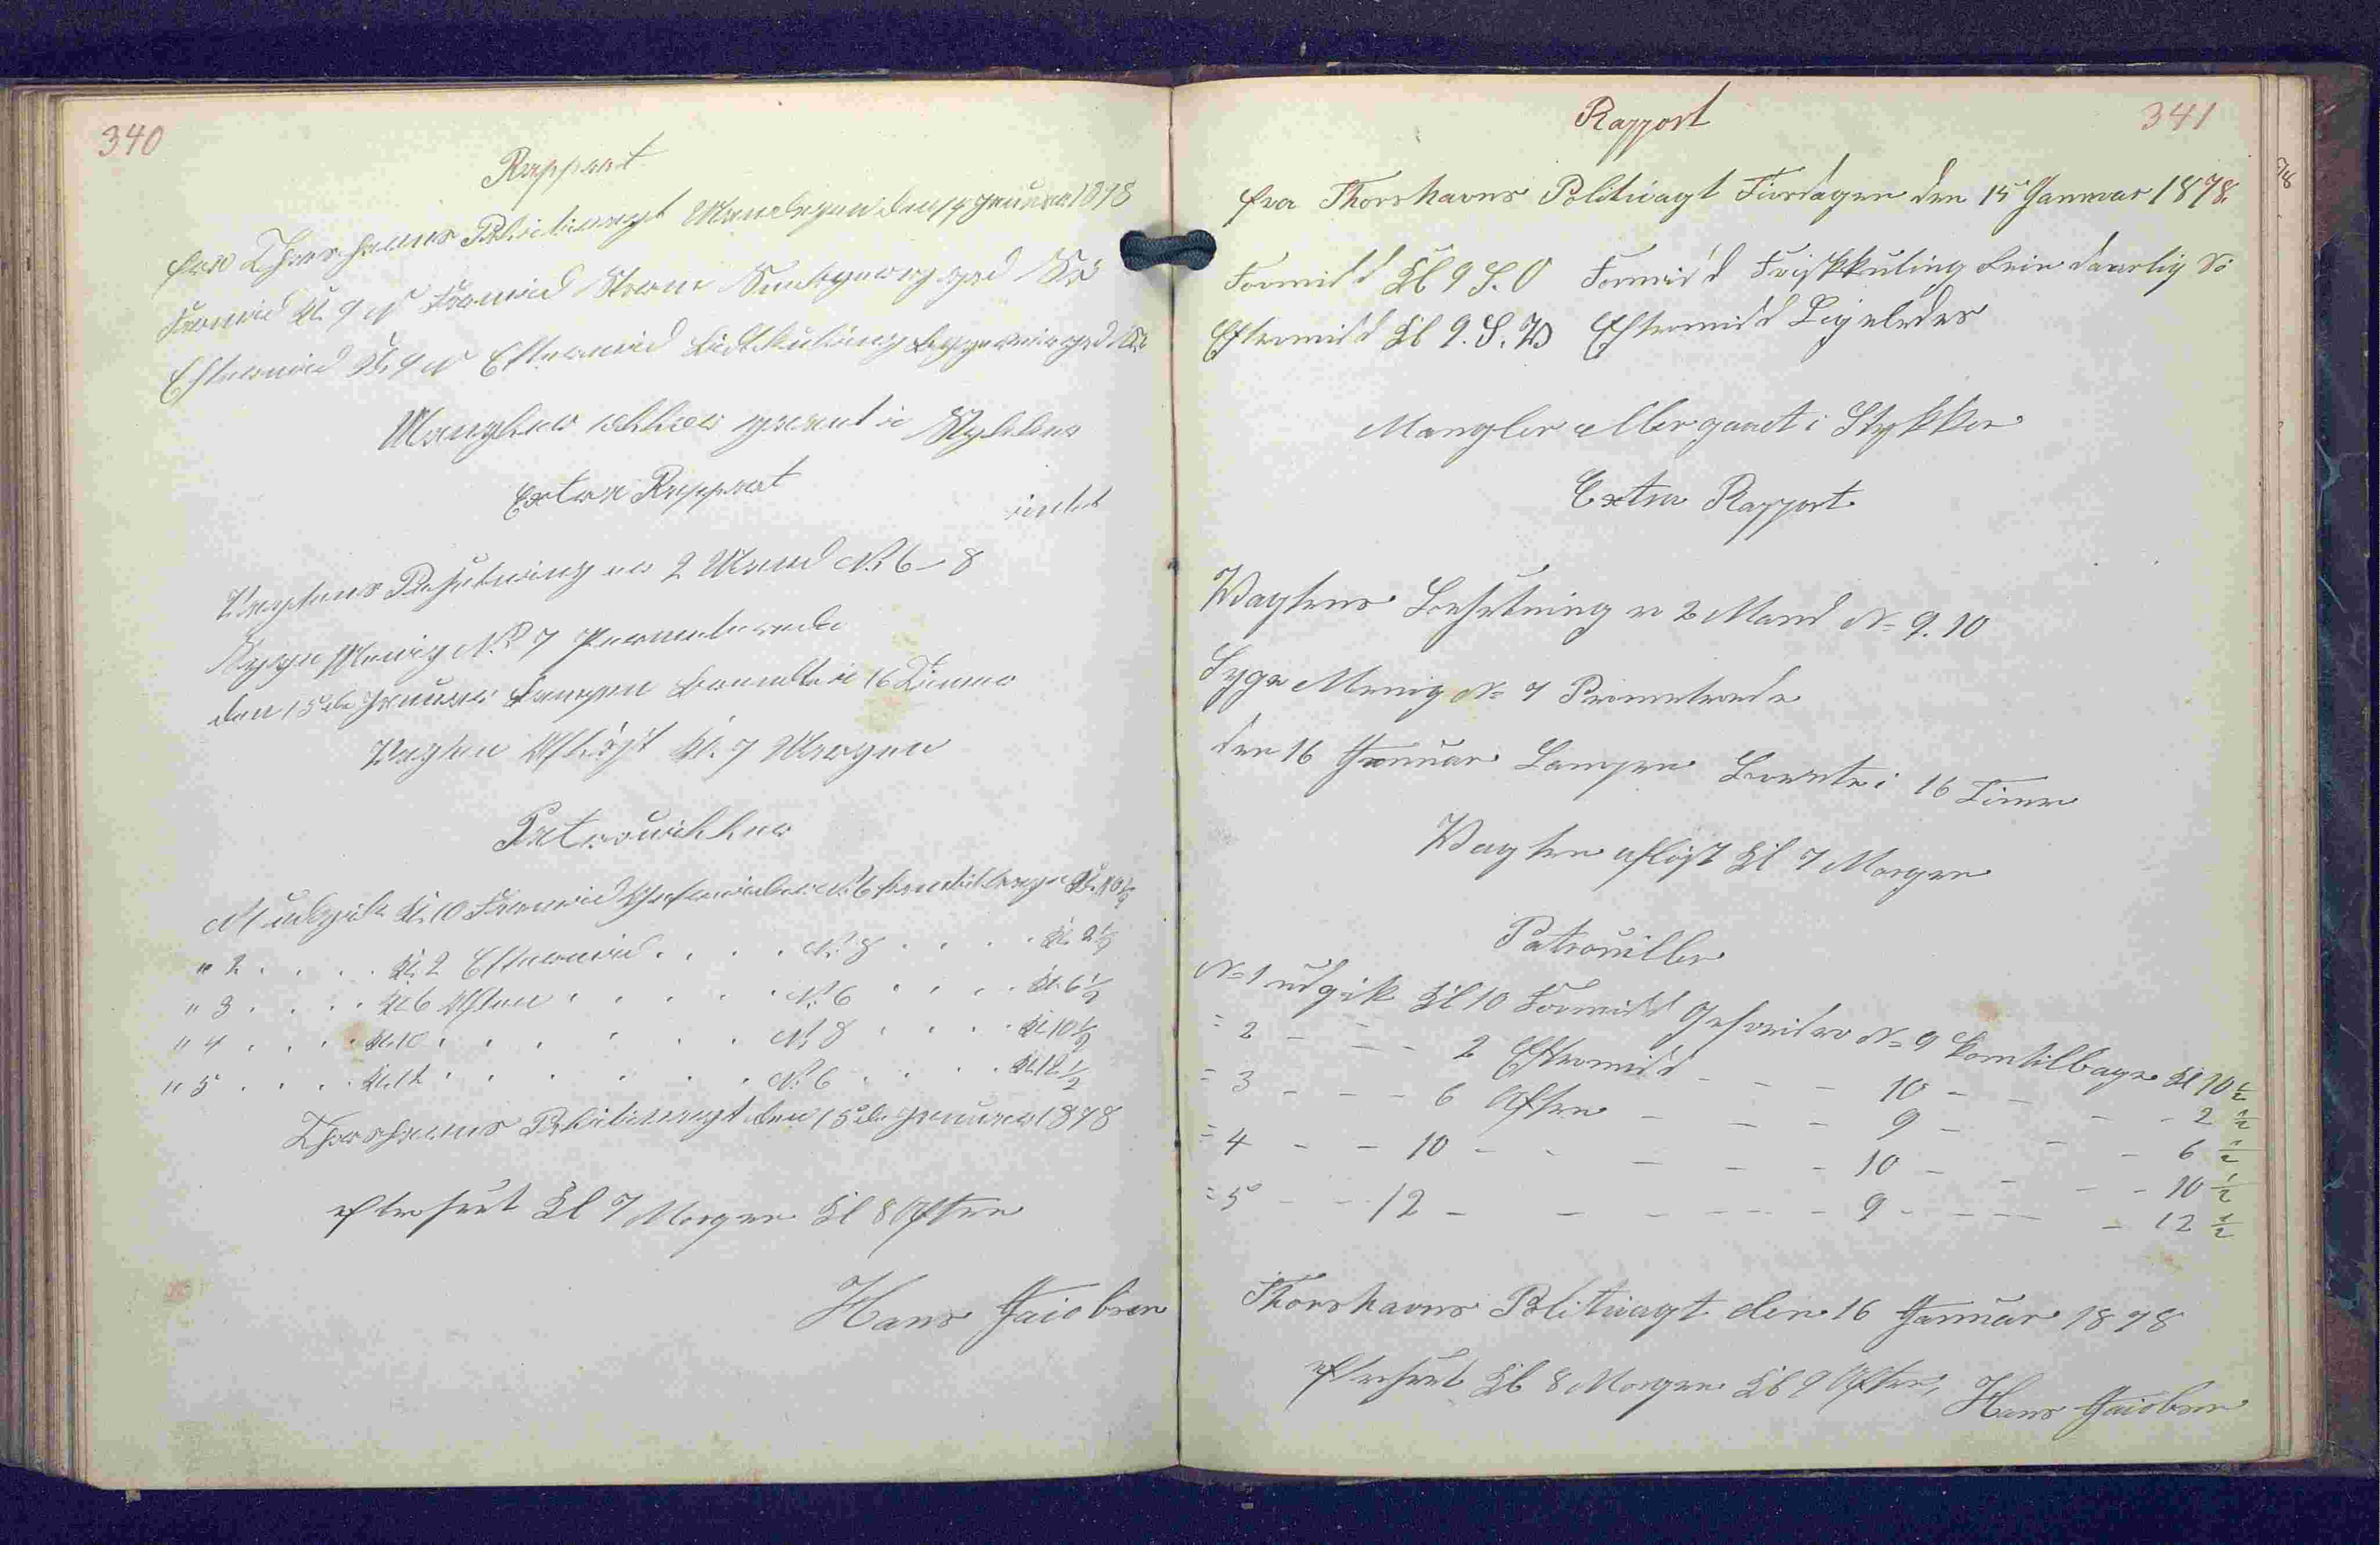 340
Rapport
fra Thorshavns Politivagt Mandagen den 14 Januar 1878
Formid Kl. 9 N Formid Storm Snebyer og god Sö
Eftermid Kl. 9 N Eftermid Lidt kuling god Sö
Mangler eller gaaet i Stykker
Extra Rapport
intet
Vagtens Besetning er 2 Mand No 6 - 8
Syge Menig No 7 Permiterede
den 15de Januar Lampen brendte i 16 Timer
Vagten Aflöst Kl. 7 Morgen
Patrouiller
No 1 udgik Kl. 10 Formid Gefreider No 6 kom tilbage Kl. 10 1/2
" 2 . . . . Kl. 2 Eftermid . . . . No 8 . . . . Kl. 2 1/2
" 3 . . . . Kl. 6 Aften . . . . No 6 . . . . Kl. 6 1/2
" 4 . . . . Kl. 10 . . . . . . No 8 . . . . Kl. 10 1/2
" 5 . . . . Kl. 12 . . . . . . No 6 . . . . Kl. 12 1/2
Thorshavns Politivagt den 15de Januar 1878
efterseet Kl 7 Morgen Kl 8 Aften
Hans Jaiobsen
341
Rapport
fra Thorshavns Politivagt Tirsdagen den 15 Januar 1878.
Formidd Kl 9 S. O Formidd Friskkuling Rein daarlig Sö
Eftermidd Kl 9. S. W Eftermidd Ligeledes
Mangler eller gaaet i Stykker
Extra Rapport
Vagtens Besetning er 2 Mand No 9. 10
Syge Menig No 7 Permetrede
den 16 Januar Lampen Brente i 16 Timer
Vagten aflöst Kl 7 Morgen
Patrouiller
No 1 udgik Kl 10 Formidd Gefreider No 9 kom tilbage Kl 10 1/2
= 2 - - - 2 Eftermidd - - - 10 - - - 2 1/2
= 3 - - - 6 Aften - - - 9 - - - 6 1/2
= 4 - - 10 - - - - - 10 - - - 10 1/2
= 5 - - 12 - - - - - 9 - - - 12 1/2
Thorshavns Politivagt den 16 Januar 1878
efterseet Kl 8 Morgen Kl 9 Aften,
Hans Jaiobsen